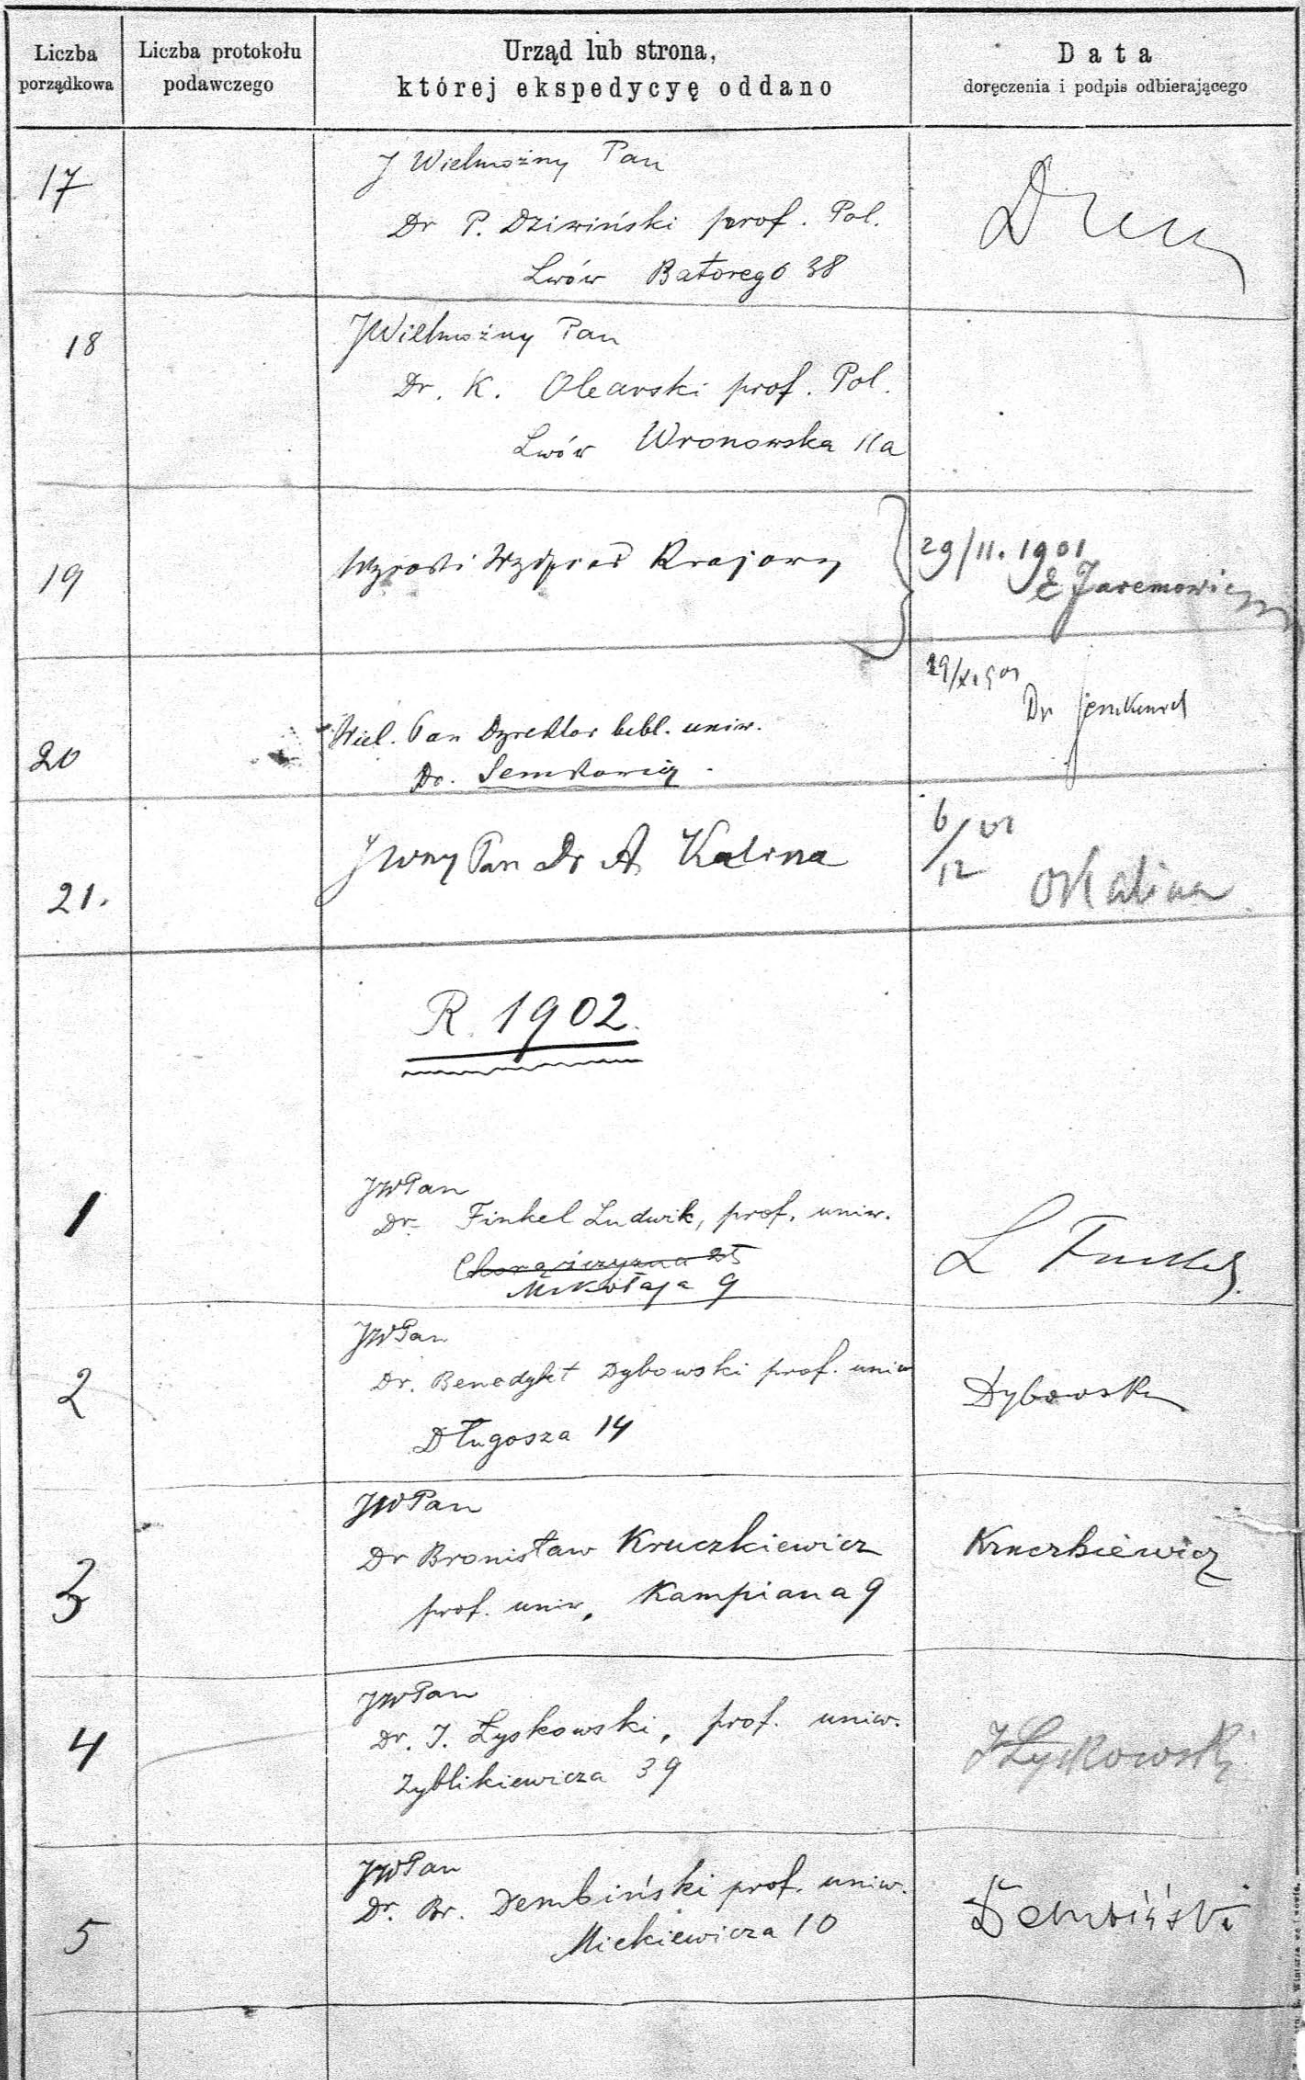 Liczba
porządkowa
Liczba protokołu
podawczego
Urząd lub strona,
której ekspedycyę oddano
Data
doręczenia i podpis odbierającego
17
J Wielmożny Pan
Dr P. Dziwiński prof. Pol.
Lwów Batorego 38
18
JWielmożny Pan
Dr. K. Olearski prof. Pol.
Lwów Wronowska 11a
19
Wysoki Wydział Krajowy
29/11. 1901
E Jaremowicz
20
Wiel. Pan Dyrektor bibl. uniw.
Dr. Semkowicz
Dr
21.
JWny Pan Dr A. Kalina
6/12 01
Kalina
R. 1902.
1
JWPan
Dr. Finkel Ludwik, prof. uniw.
Chorążczyzna 25
Mikołaja 9
L Finkel
2
JWPan
Dr. Benedykt Dybowski prof. uniw
Długosza 14
Dybowski
3
JWPan
Dr Bronisław Kruczkiewicz
prof. uniw. Kampiana 9
Kruczkiewicz
4
JWPan
Dr. I. Łyskowski, prof. uniw.
Zyblikiewicza 39
I Łyskowski
5
JWPan
Dr. Br. Dembiński prof. uniw.
Mickiewicza 10
Dembiński